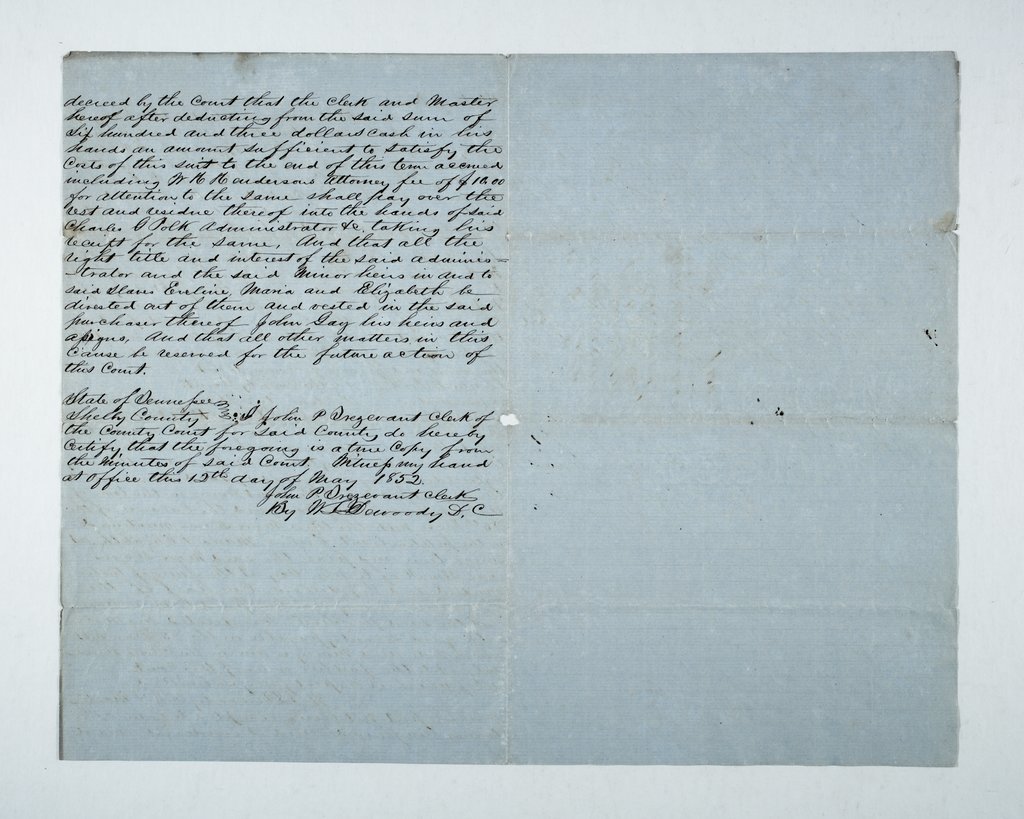 decreed by the Court that the Clerk and Master
hereof after deducting from the said sum of
Six hundred and three dollars cash in his
hands an amount sufficient to satisfy the
costs of this suit to the end of this term accrued
including W H Hendersons Attorney fee of $10.00
for attention to the same shall pay over the
rest and residue thereof into the hands of said
Charles G Polk Administrator &c. taking his
receipt for the same, And that all the
right title and interest of the said adminis
-trator and the said Minor heirs in and to
said Slaves Emline, Maria and Elizabeth be
divested out of them and vested in the said
purchaser thereof John Gay his heirs and
assigns, And that all other matters in this
Cause be reserved for the future action of
this Court.
State of Tennessee
Shelby County I John P Trezevant Clerk of
the County Court for said County do hereby
Certify that the foregoing is a true Copy from
the Minutes of said Court. Witness my hand
at office this 12th day of May 1852.
John P Trezevant Clerk
By Dewoody D. C